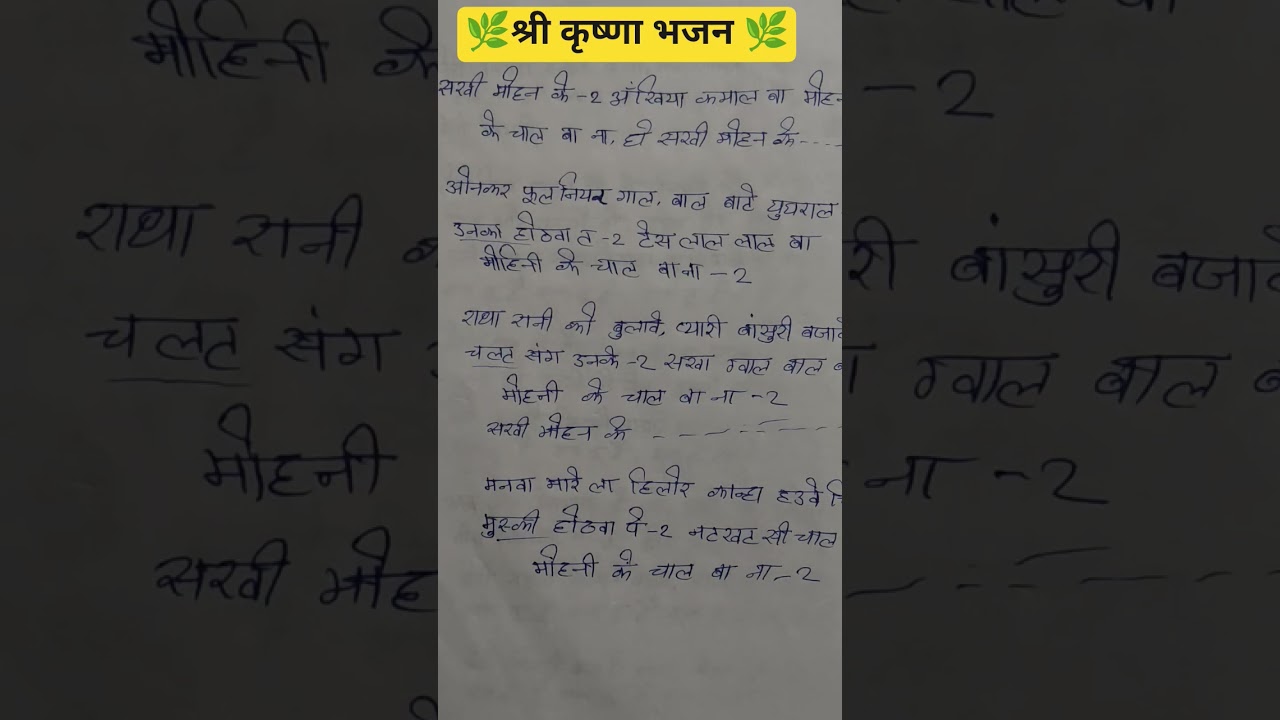 🌿श्री कृष्णा भजन 🌿
सखी मोहन के -2 अँखिया कमाल बा मोहन
के चाल बा ना, हो सखी मोहन के ----
ओनकर फूल नियर गाल, बाल बाटे घुघराल
उनका होठवा त -2 टेस लाल लाल बा
मोहिनी के चाल बा ना -2
राधा रानी को बुलावे, प्यारी बांसुरी बजावे
चलट संग उनके -2 सखा ग्वाल बाल ब
मोहनी के चाल बा ना -2
सखी मोहन के - - - - - -
मनवा मारे ला हिलोर कान्हा हउवे
मुस्की होठवा पे -2 नटखट सी चाल
मोहनी के चाल बा ना -2